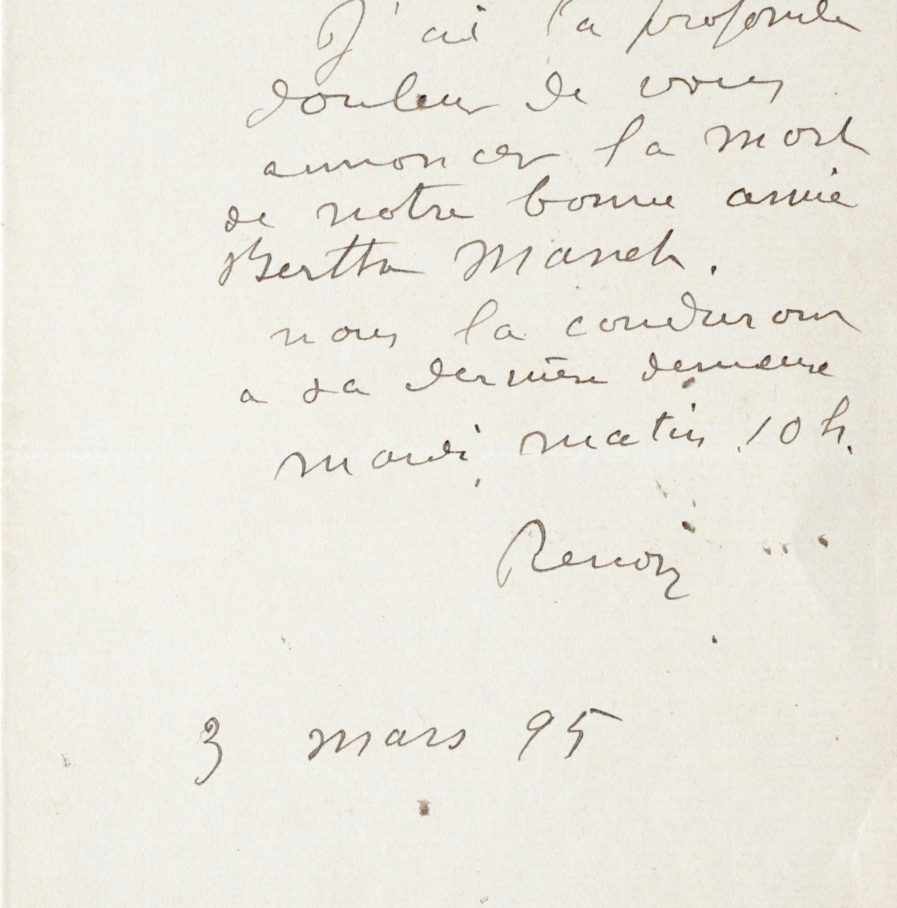 J'ai la profonde
douleur de vous
annoncer la mort
de notre bonne amie
Berthe Manet.
nous la conduirons
a sa dernière demeure
mardi, matin 10 h.
Renoir
3 mars 95